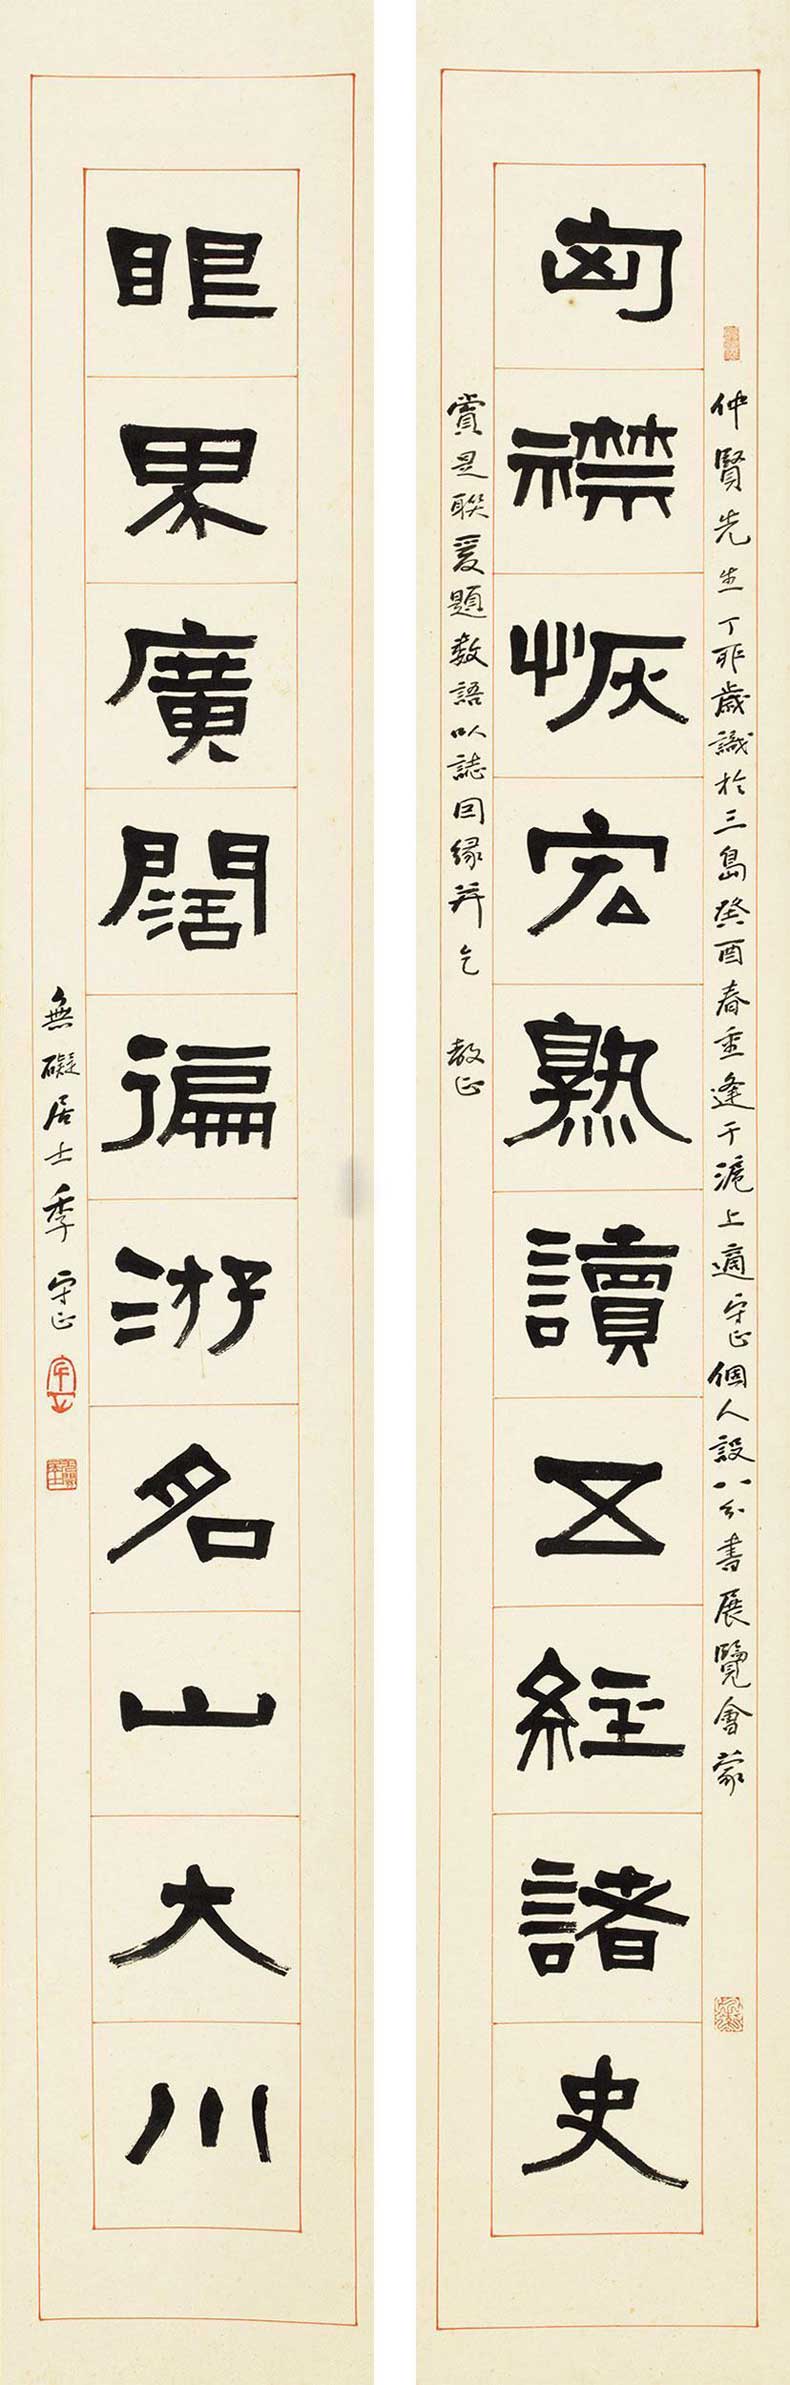 仲賢先生丁卯歲識於三島癸酉春重逢于滬上適守正個人設八分書展覽會蒙
匈襟恢宏熟讀五經諸史
賞是聯爰題數語以誌因緣并乞
教正
眼界廣闊徧游名山大川
無礙居士季守正